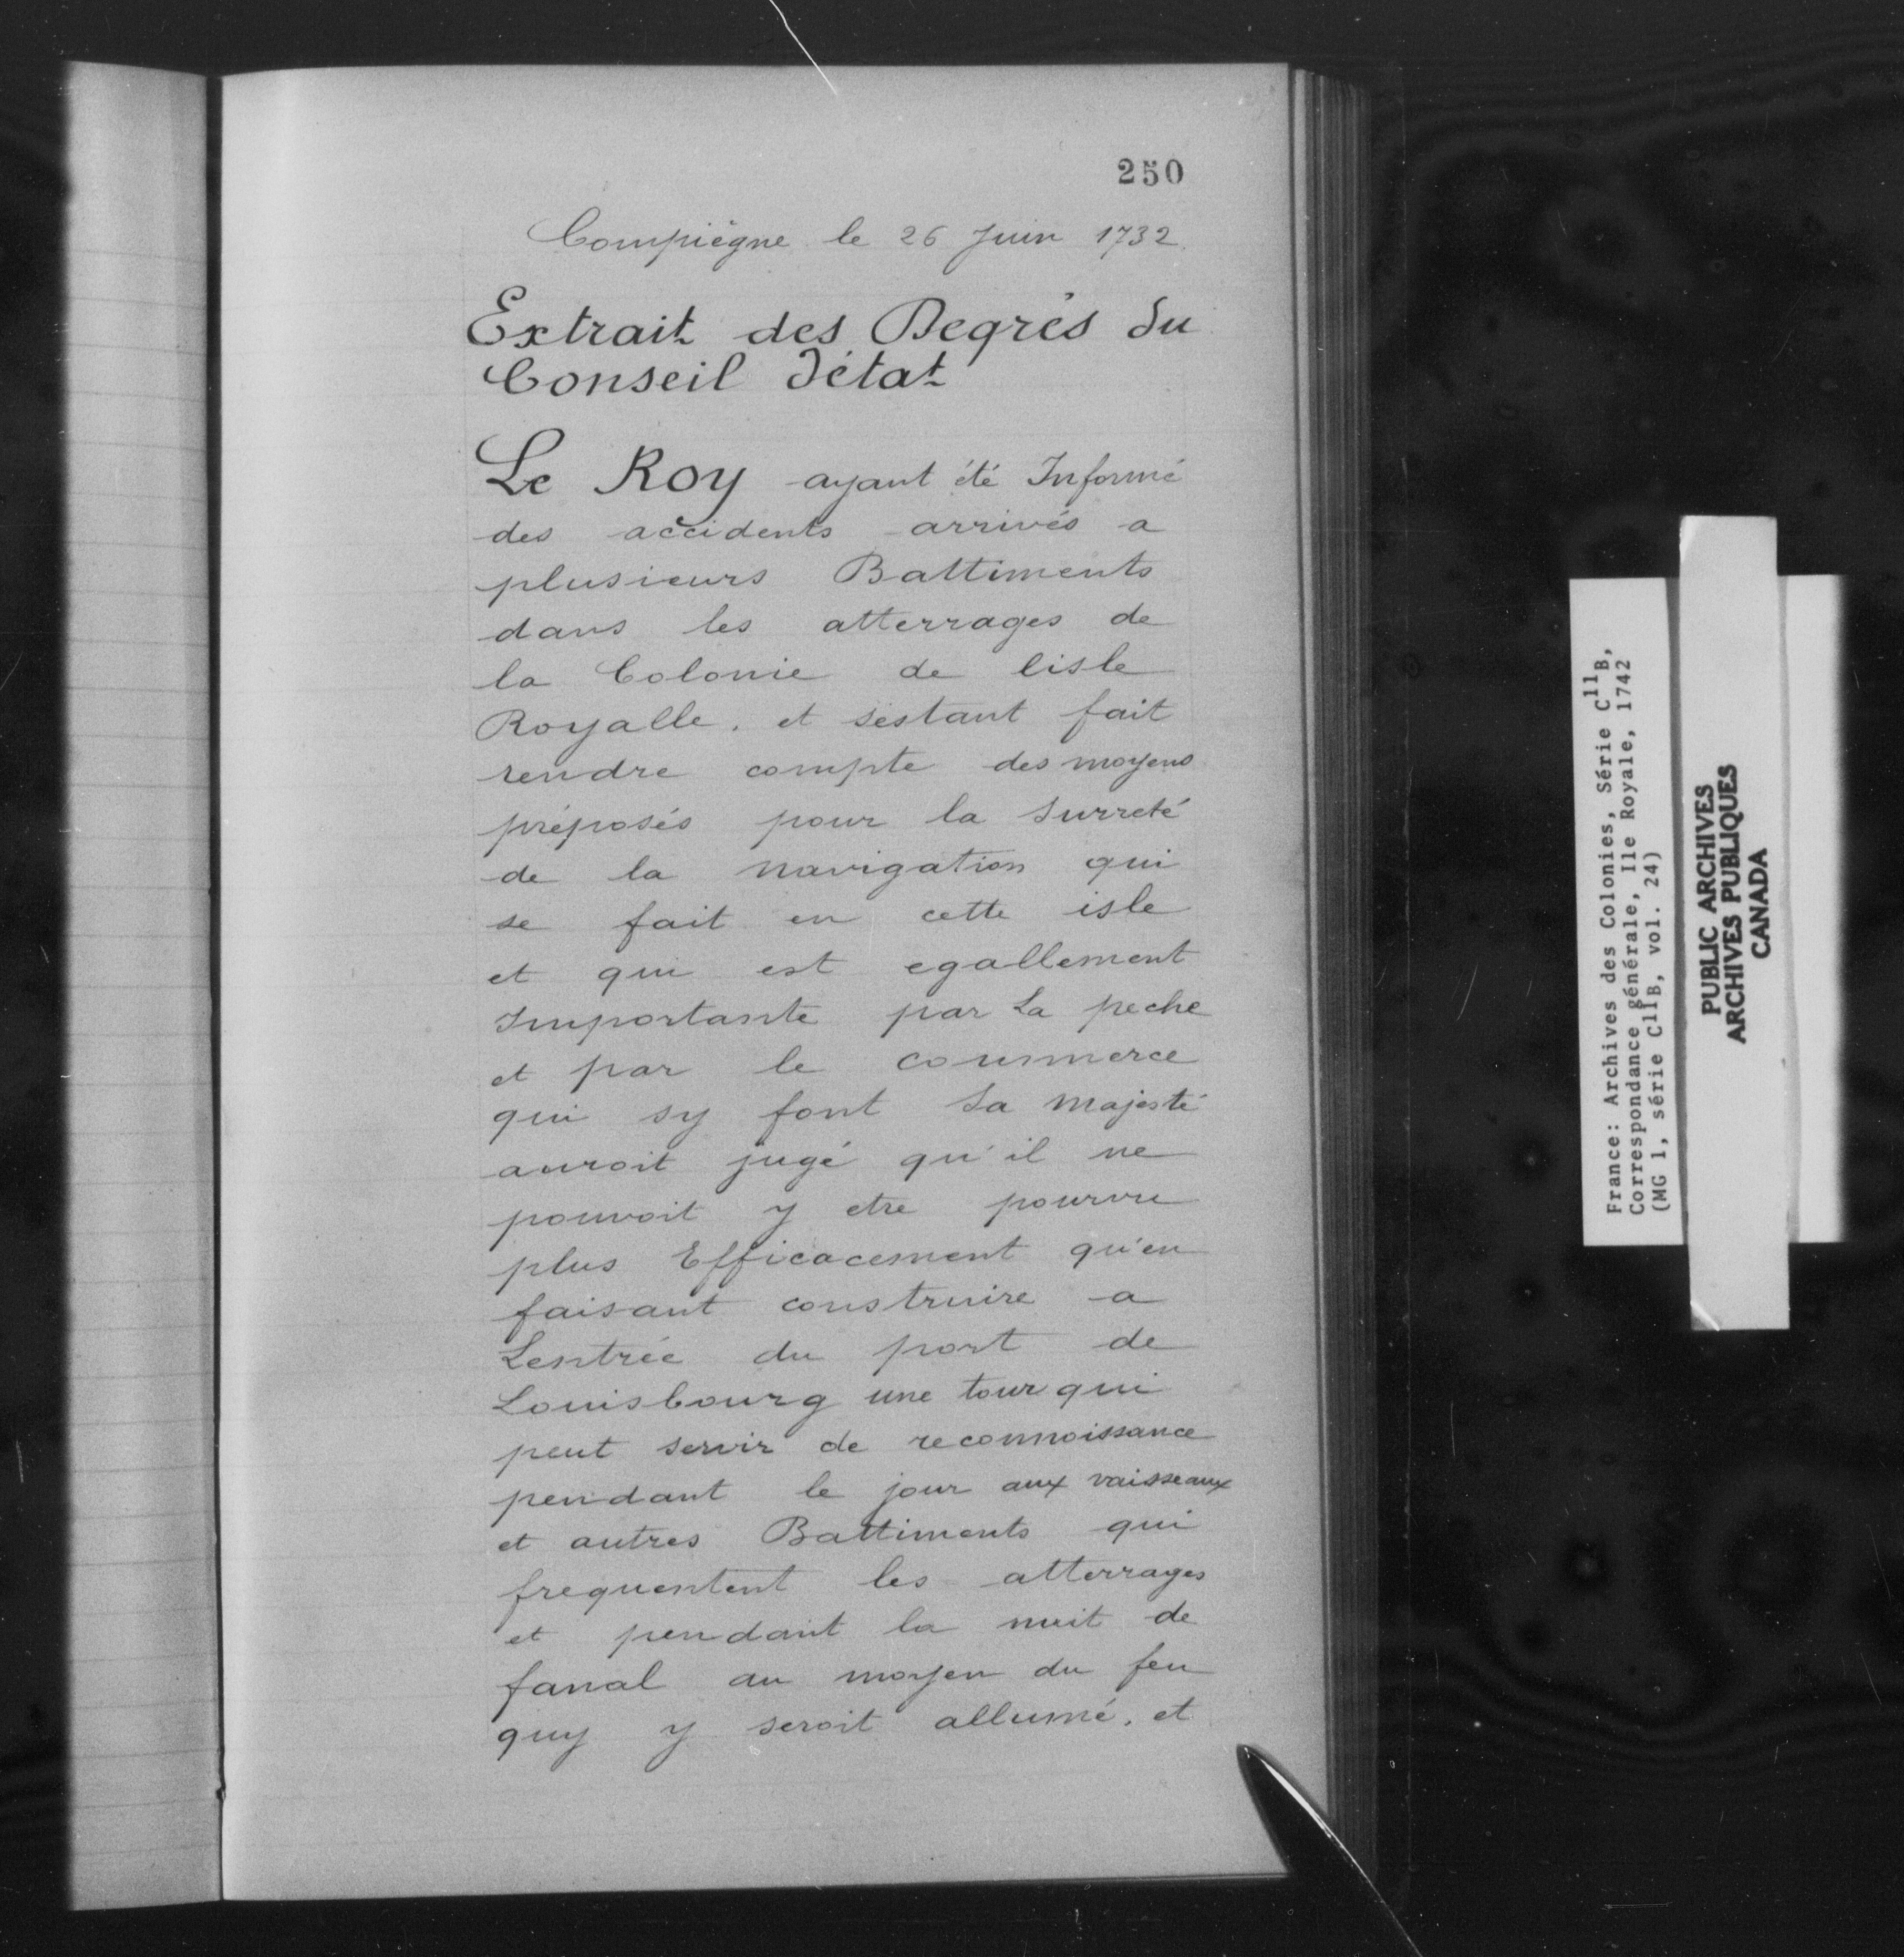 250
Compiègne le 26 Juin 1732.
Extrait des Degrés du
Conseil d'état
Le Roy ayant été Informé
des accidents arrivés a
plusieurs Battiments
dans les atterrages de
la Colonie de lisle
Royalle. et s'estant fait
rendre compte des moyens
préposés pour la Surreté
de la navigation qui
se fait en cette isle
et qui est egallement
Importante par La peche
et par le commerce
qui sy font Sa Majesté
auroit jugé qu'il ne
pouvoit y etre pourvu
plus Efficacement qu'en
faisant construire a
Lentrée du port de
Louisbourg une tour qui
peut servir de reconnoissance
pendant le jour aux vaisseaux
et autres Battiments qui
frequentent les atterrages
et pendant la nuit de
fanal au moyen du feu
quy y seroit allumé. et
France: Archives des Colonies, Série C11B,
Correspondance générale, Ile Royale, 1742
(MG 1, série C11B, vol. 24)
PUBLIC ARCHIVES
ARCHIVES PUBLIQUES
CANADA